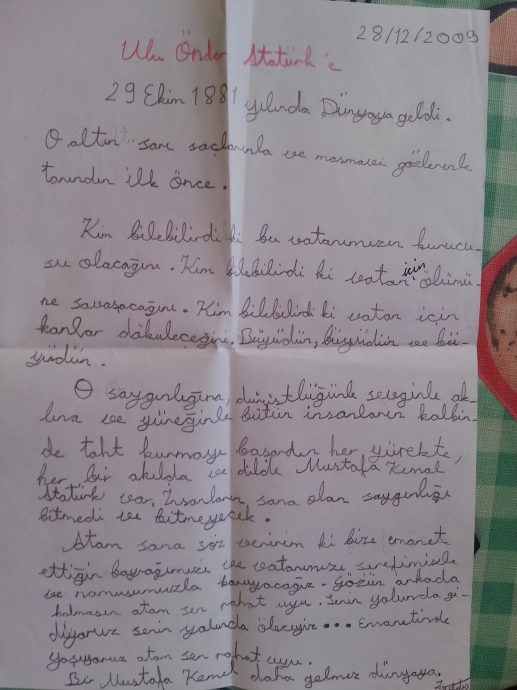 28/12/2009
Ulu Önder Atatürk'e
29 Ekim 1881 yılında Dünyaya geldi.
O altın sarı saçlarınla ve masmavi gözlerinle
tanındın ilk önce.
Kim bilebilirdi ki bu vatanımızın kurucu-
su olacağını. Kim bilebilirdi ki vatan için ölümü-
ne savaşacağını. Kim bilebilirdi ki vatan için
kanlar döküleceğini. Büyüdün, büyüdün ve bü-
yüdün.
O saygınlığına, dürüstlüğünle sevginle ak-
lına ve yüreğinle bütün insanların kalbin-
de taht kurmayı başardın her yürekte,
her bir akılda ve dilde Mustafa Kemal
Atatürk var. İnsanların sana olan saygınlığı
bitmedi ve bitmeyecek.
Atam sana söz veririm ki bize emanet
ettiğin bayrağımızı ve vatanımızı şerefimizle
ve namusumuzla koruyacağız. Gözün arkada
kalmasın atam sen rahat uyu. Senin yolunda gi-
diyoruz senin yolunda öleceyiz... Emanetinde
yaşıyoruz atam sen rahat uyu.
Bir Mustafa Kemal daha gelmez dünyaya.